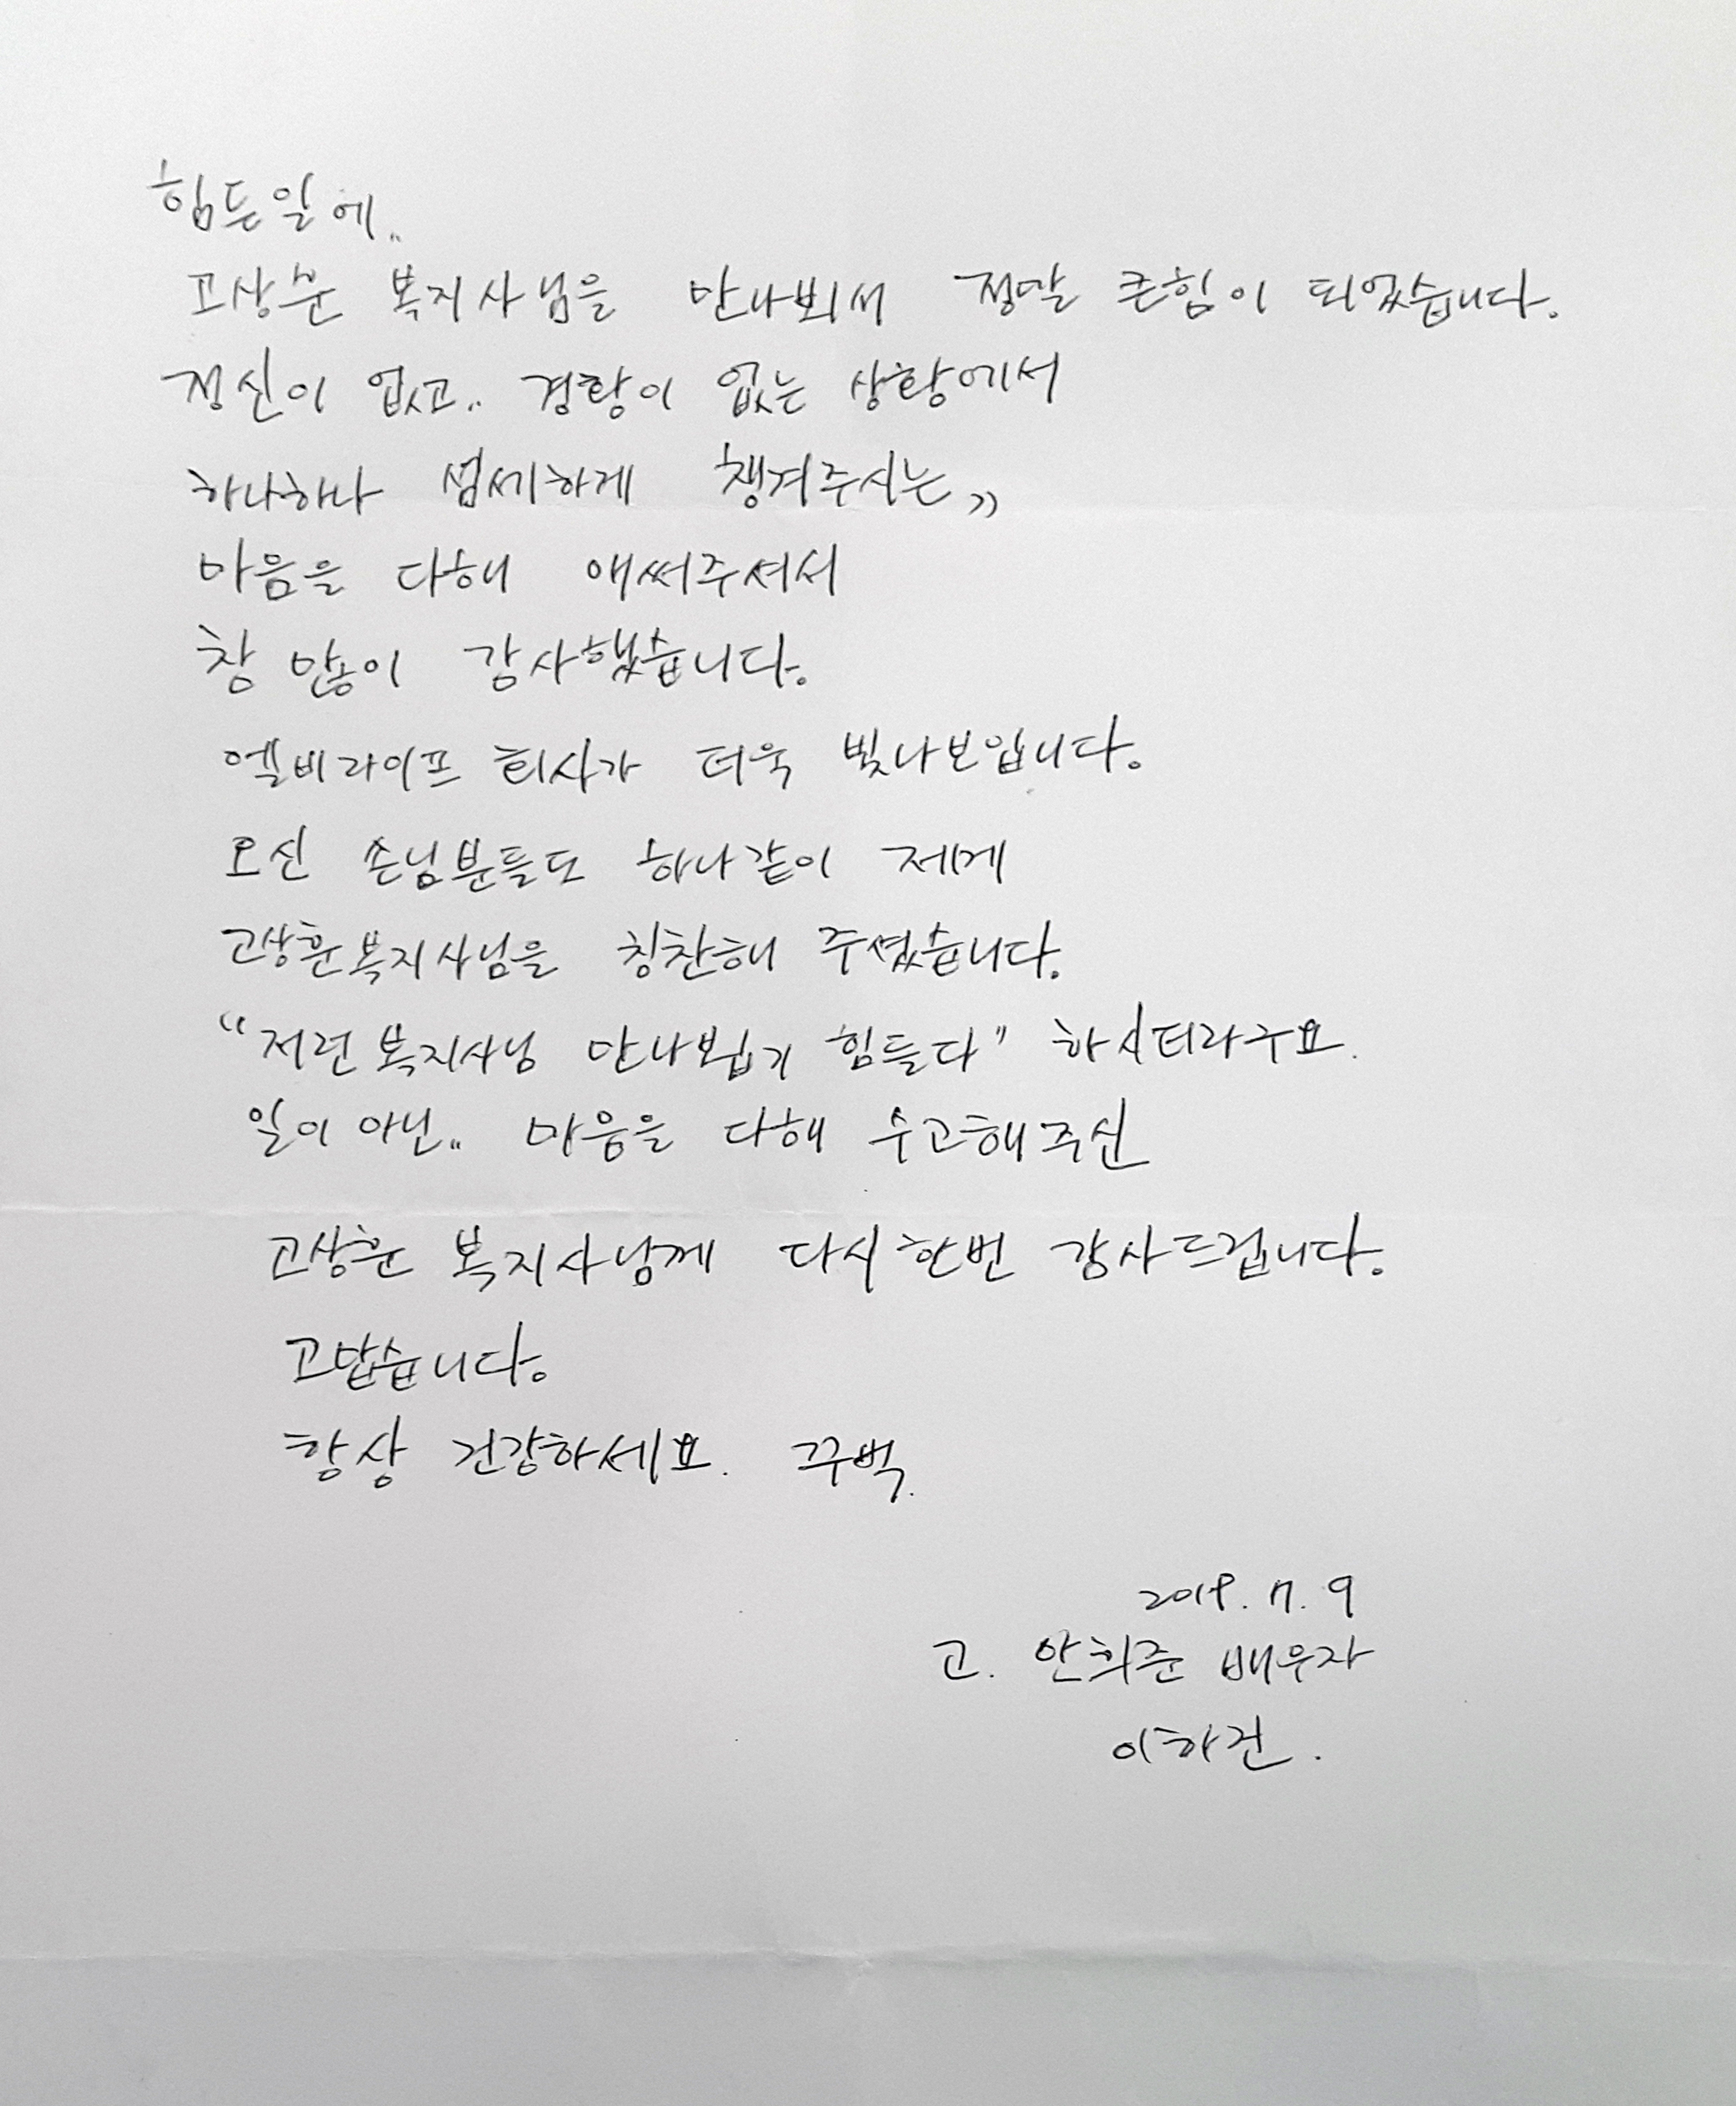 힘든일에..
고상훈 복지사님을 만나뵈서 정말 큰힘이 되었습니다.
정신이 없고.. 경황이 없는 상황에서
하나하나 섬세하게 챙겨주시는,,
마음을 다해 애써주셔서
참 많이 감사했습니다.
엘비라이프 회사가 더욱 빛나보입니다.
오신 손님분들도 하나같이 제게
고상훈복지사님을 칭찬해 주셨습니다.
"저런 복지사님 만나뵙기 힘들다" 하시더라구요.
일이 아닌.. 마음을 다해 수고해주신
고상훈 복지사님께 다시한번 감사드립니다.
고맙습니다.
항상 건강하세요. 꾸벅.
2019. 7. 9
고. 안희준 배우자
이하건.